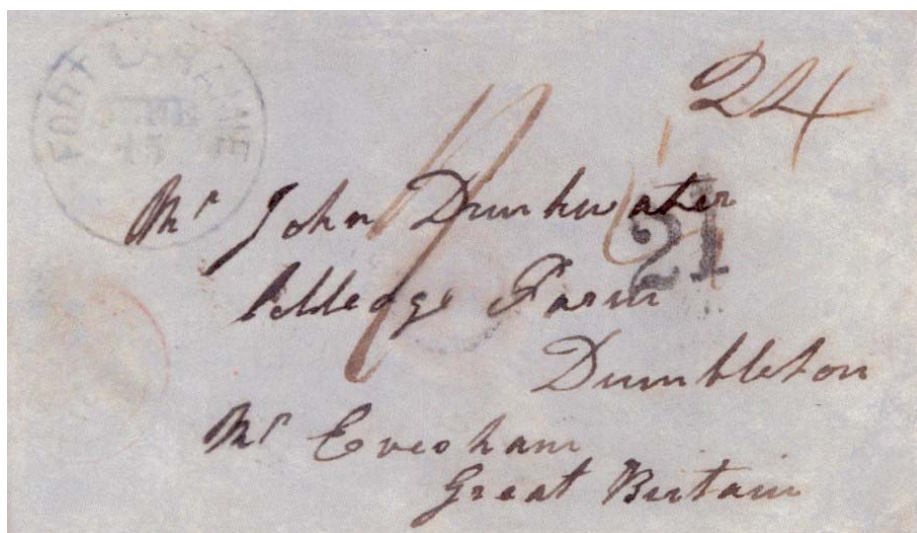 FORT LARAMIE
15
24
21
Mr John Drinkwater
College Farm
Dumbleton
Nr Evesham
Great Britain